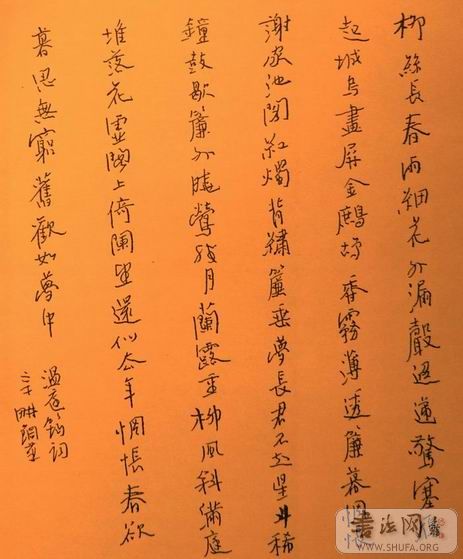 柳絲長春雨細花外漏聲迢遞驚塞
起城烏畫屏金鷓鴣香霧薄透簾幕惆悵
謝家池閣紅燭背繡簾垂夢長君不知星斗稀
鐘鼓歇簾外曉鶯殘月蘭露重柳風斜滿庭
堆落花虛閣上倚闌望還似去年惆悵春欲
暮思無窮舊歡如夢中
溫庭筠詞
書法网
WWW.SHUFA.ORG